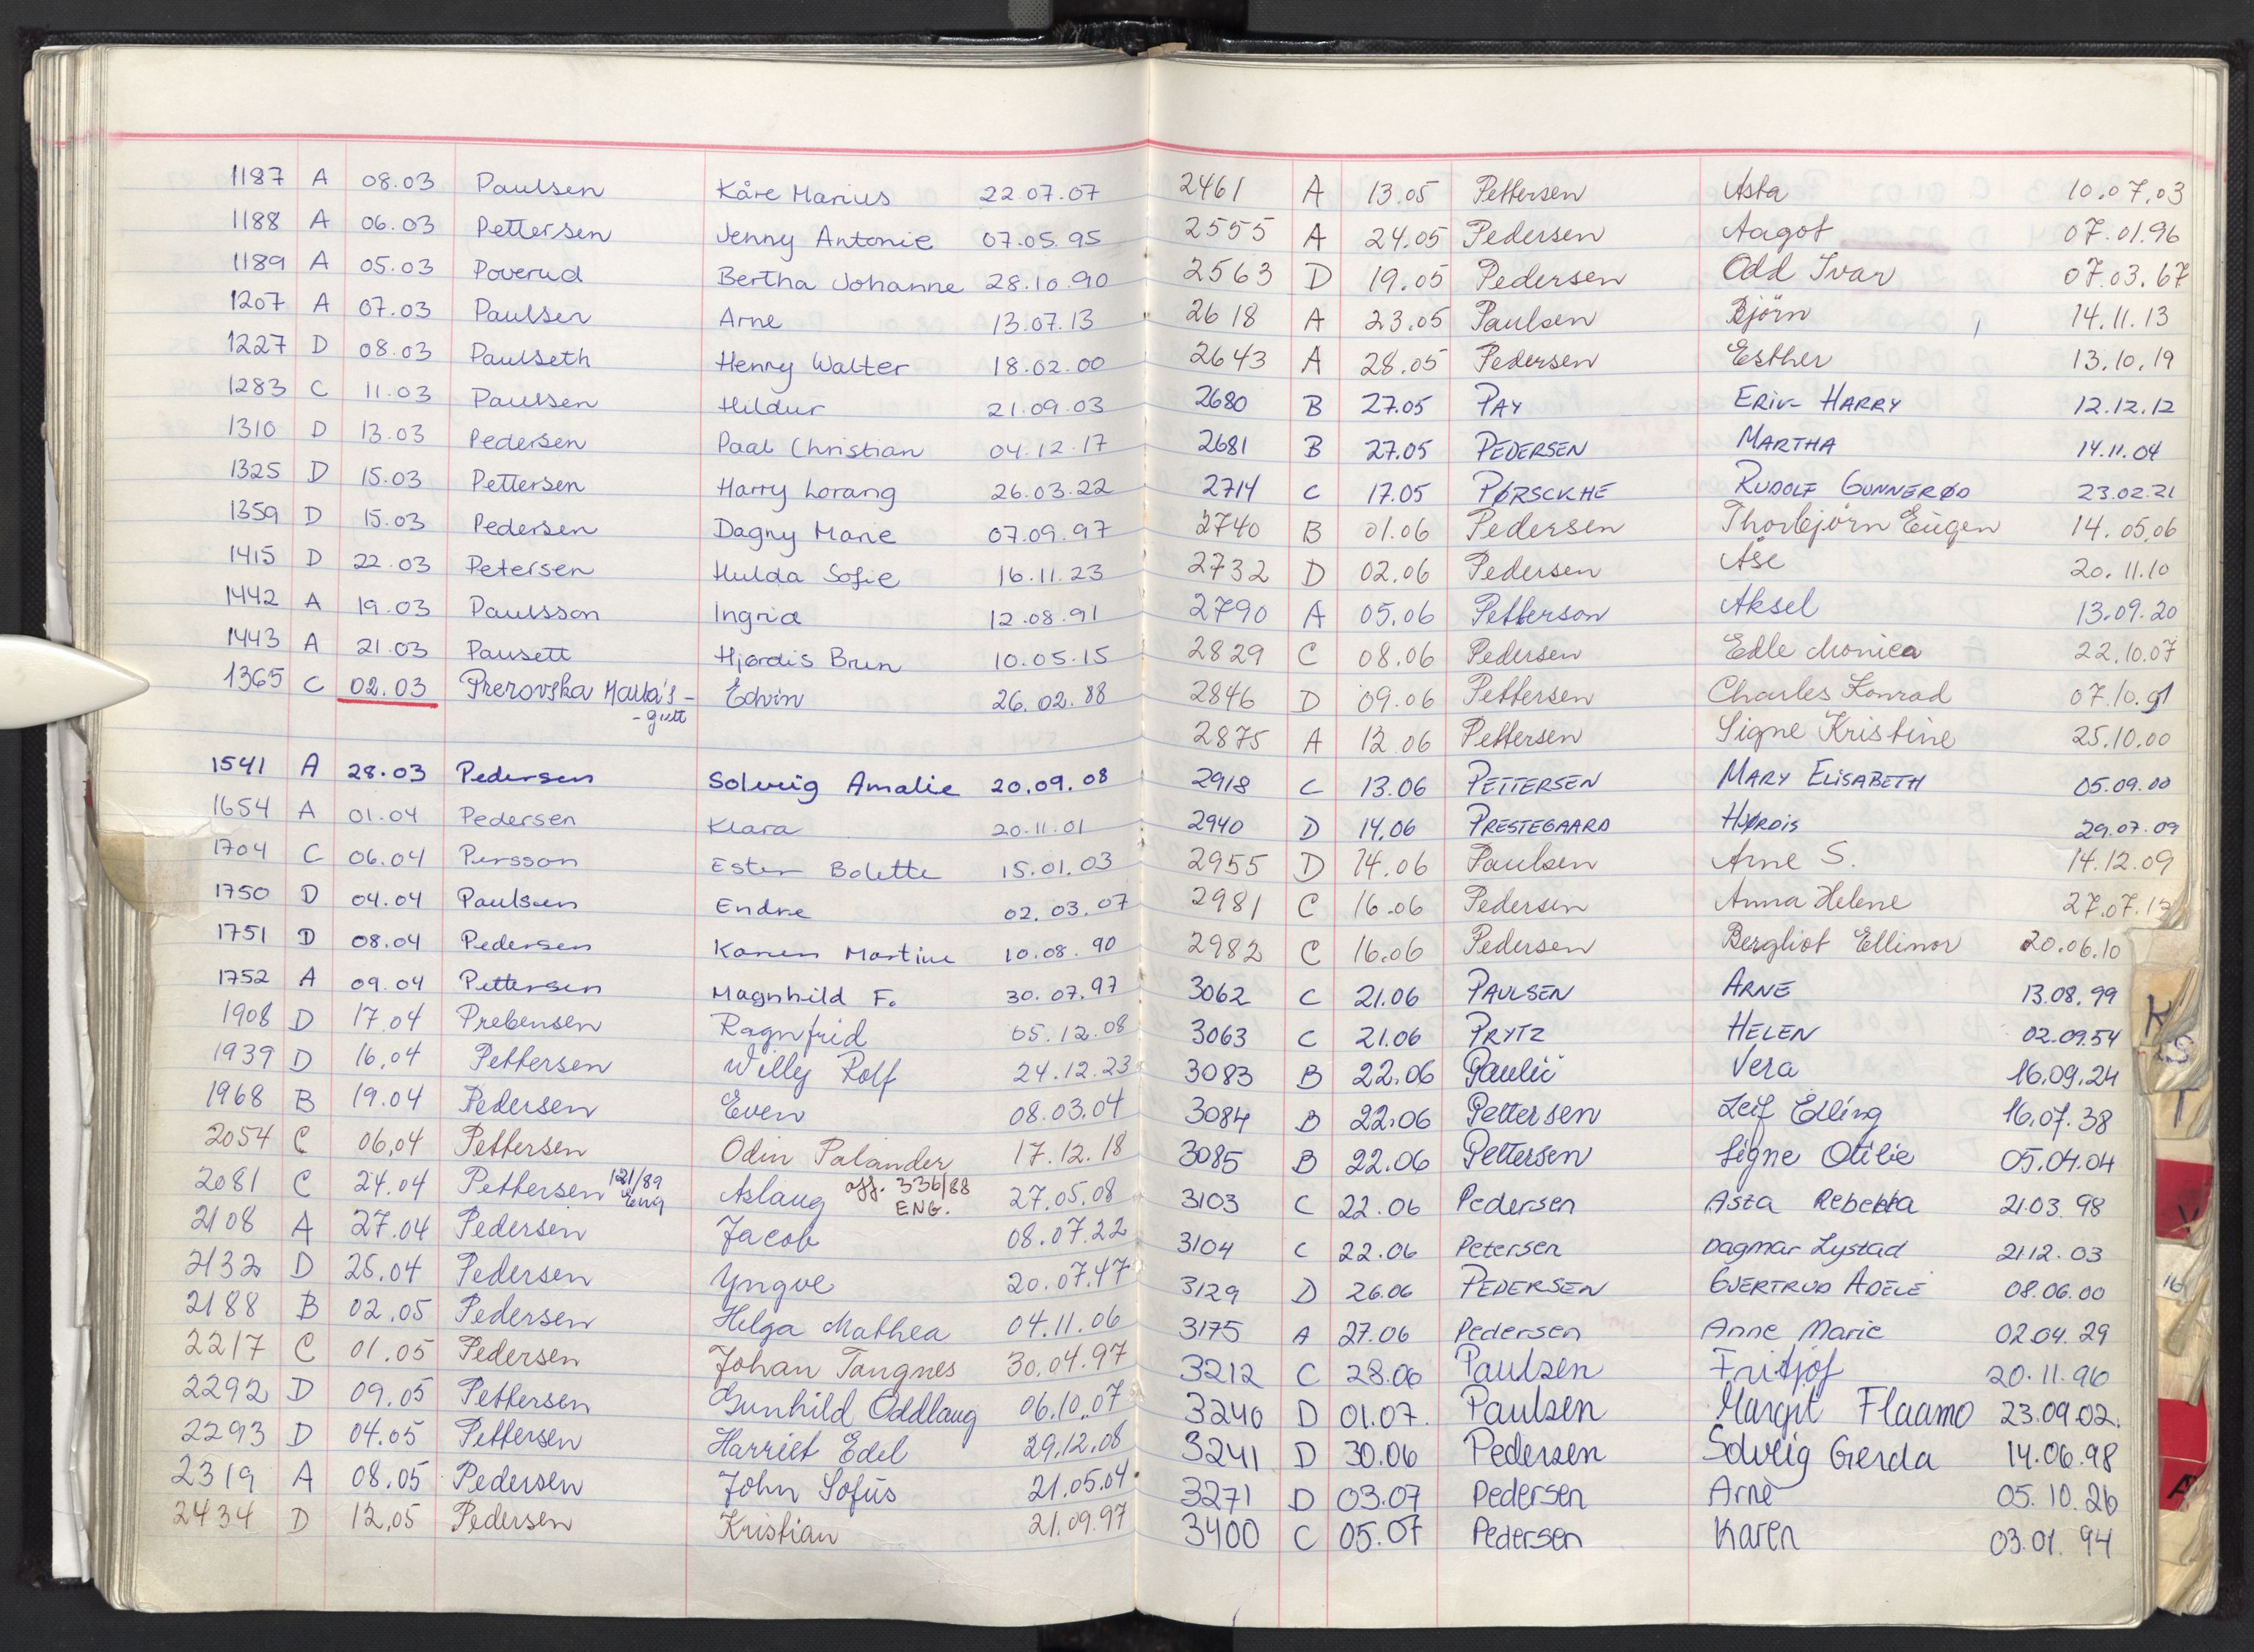 1187 A 08.03 Paulsen Kåre Marius 22.07.07
1188 A 06.03 Pettersen Jenny Antonie 07.05.95
1189 A 05.03 Poverud Bertha Johanne 28.10.90
1207 A 07.03 Paulsen Arne 13.07.13
1227 D 08.03 Paulseth Henry Walter 18.02.00
1283 C 11.03 Paulsen Hildur 21.09.03
1310 D 13.03 Pedersen Paal Christian 04.12.17
1325 D 15.03 Pettersen Harry Lorang 26.03.22
1359 D 15.03 Pedersen Dagny Marie 07.09.97
1415 D 22.03 Petersen Hulda Sofie 16.11.23
1442 A 19.03 Paulsson Ingrid 12.08.91
1443 A 21.03 Pausett Hjørdis Brun 10.05.15
1365 C 02.03 Prerovska Edvin 26.02.88
- gutt
1541 A 28.03 Pedersen Solveig Amalie 20.09.08
1654 A 01.04 Pedersen Klara 20.11.01
1704 C 06.04 Persson Ester Bolette 15.01.03
1750 D 04.04 Paulsen Endre 02.03.07
1751 D 08.04 Pedersen Karen Martine 10.08.90
1752 A 09.04 Pettersen Magnhild F. 30.07.97
1908 D 17.04 Prebensen Ragnfrid 05.12.08
1939 D 16.04 Pettersen Willy Rolf 24.12.23
1968 B 19.04 Pedersen Even 08.03.04
2054 C 06.04 Pettersen Odin Palander 17.12.18
2081 C 24.04 Pettersen 121/89 Eng Aslaug off. 336/88 ENG. 27.05.08
2108 A 27.04 Pedersen Jacob 08.07.22
2132 D 25.04 Pedersen Yngve 20.07.47
2188 B 02.05 Pedersen Helga Mathea 04.11.06
2217 C 01.05 Pedersen Johan Tangnes 30.04.97
2292 D 09.05 Pettersen Gunhild Oddlaug 06.10.07
2293 D 04.05 Pettersen Harriet Edel 29.12.08
2319 A 08.05 Pedersen John Sofus 21.05.04
2434 D 12.05 Pedersen Kristian 21.09.97
2461 A 13.05 Pettersen Asta 10.07.03
2555 A 24.05 Pedersen Aagot 07.01.96
2563 D 19.05 Pedersen Odd Ivar 07.03.67
2618 A 23.05 Paulsen Bjørn 14.11.13
2643 A 28.05 Pedersen Esther 13.10.19
2680 B 27.05 PAY ERIK HARRY 12.12.12
2681 B 27.05 PEDERSEN MARTHA 14.11.04
2714 C 17.05 PØRSCKHE RUDOLF GUNNERØD 23.02.21
2740 B 01.06 Pedersen Thorbjørn Eugen 14.05.06
2732 D 02.06 Pedersen Åse 20.11.10
2790 A 05.06 Petterson Aksel 13.09.20
2829 C 08.06 Pedersen Edle Monica 22.10.07
2846 D 09.06 Pettersen Charles Konrad 07.10.91
2875 A 12.06 Pettersen Signe Kristine 25.10.00
2918 C 13.06 PETTERSEN MARY ELISABETH 05.09.00
2940 D 14.06 PRESTEGAARD HJØRDIS 29.07.09
2955 D 14.06 Paulsen Arne S. 14.12.09
2981 C 16.06 Pedersen Anna Helene 27.07.13
2982 C 16.06 Pedersen Bergliot Ellinor 20.06.10
3062 C 21.06 PAULSEN ARNE 13.08.99
3063 C 21.06 PRYTZ HELEN 02.09.54
3083 B 22.06 Paulič Vera 16.09.24
3084 B 22.06 Pettersen Leif Edling 16.07.38
3085 B 22.06 Pettersen Signe Otilie 05.04.04
3103 C 22.06 Pedersen Asta Rebekka 21.03.98
3104 C 22.06 Petersen Dagmar Lystad 21.12.03
3129 D 26.06 PEDERSEN GJERTRUD ADELE 08.06.00
3175 A 27.06 Pedersen Anne Marie 02.04.29
3212 C 28.06 Paulsen Fritjof 20.11.96
3240 D 01.07. Paulsen Margit Flaamo 23.09.02.
3241 D 30.06 Pedersen Solveig Gerda 14.06.98
3271 D 03.07 Pedersen Arne 05.10.26
3400 C 05.07 Pedersen Karen 03.01.94
K
S
T
V
16